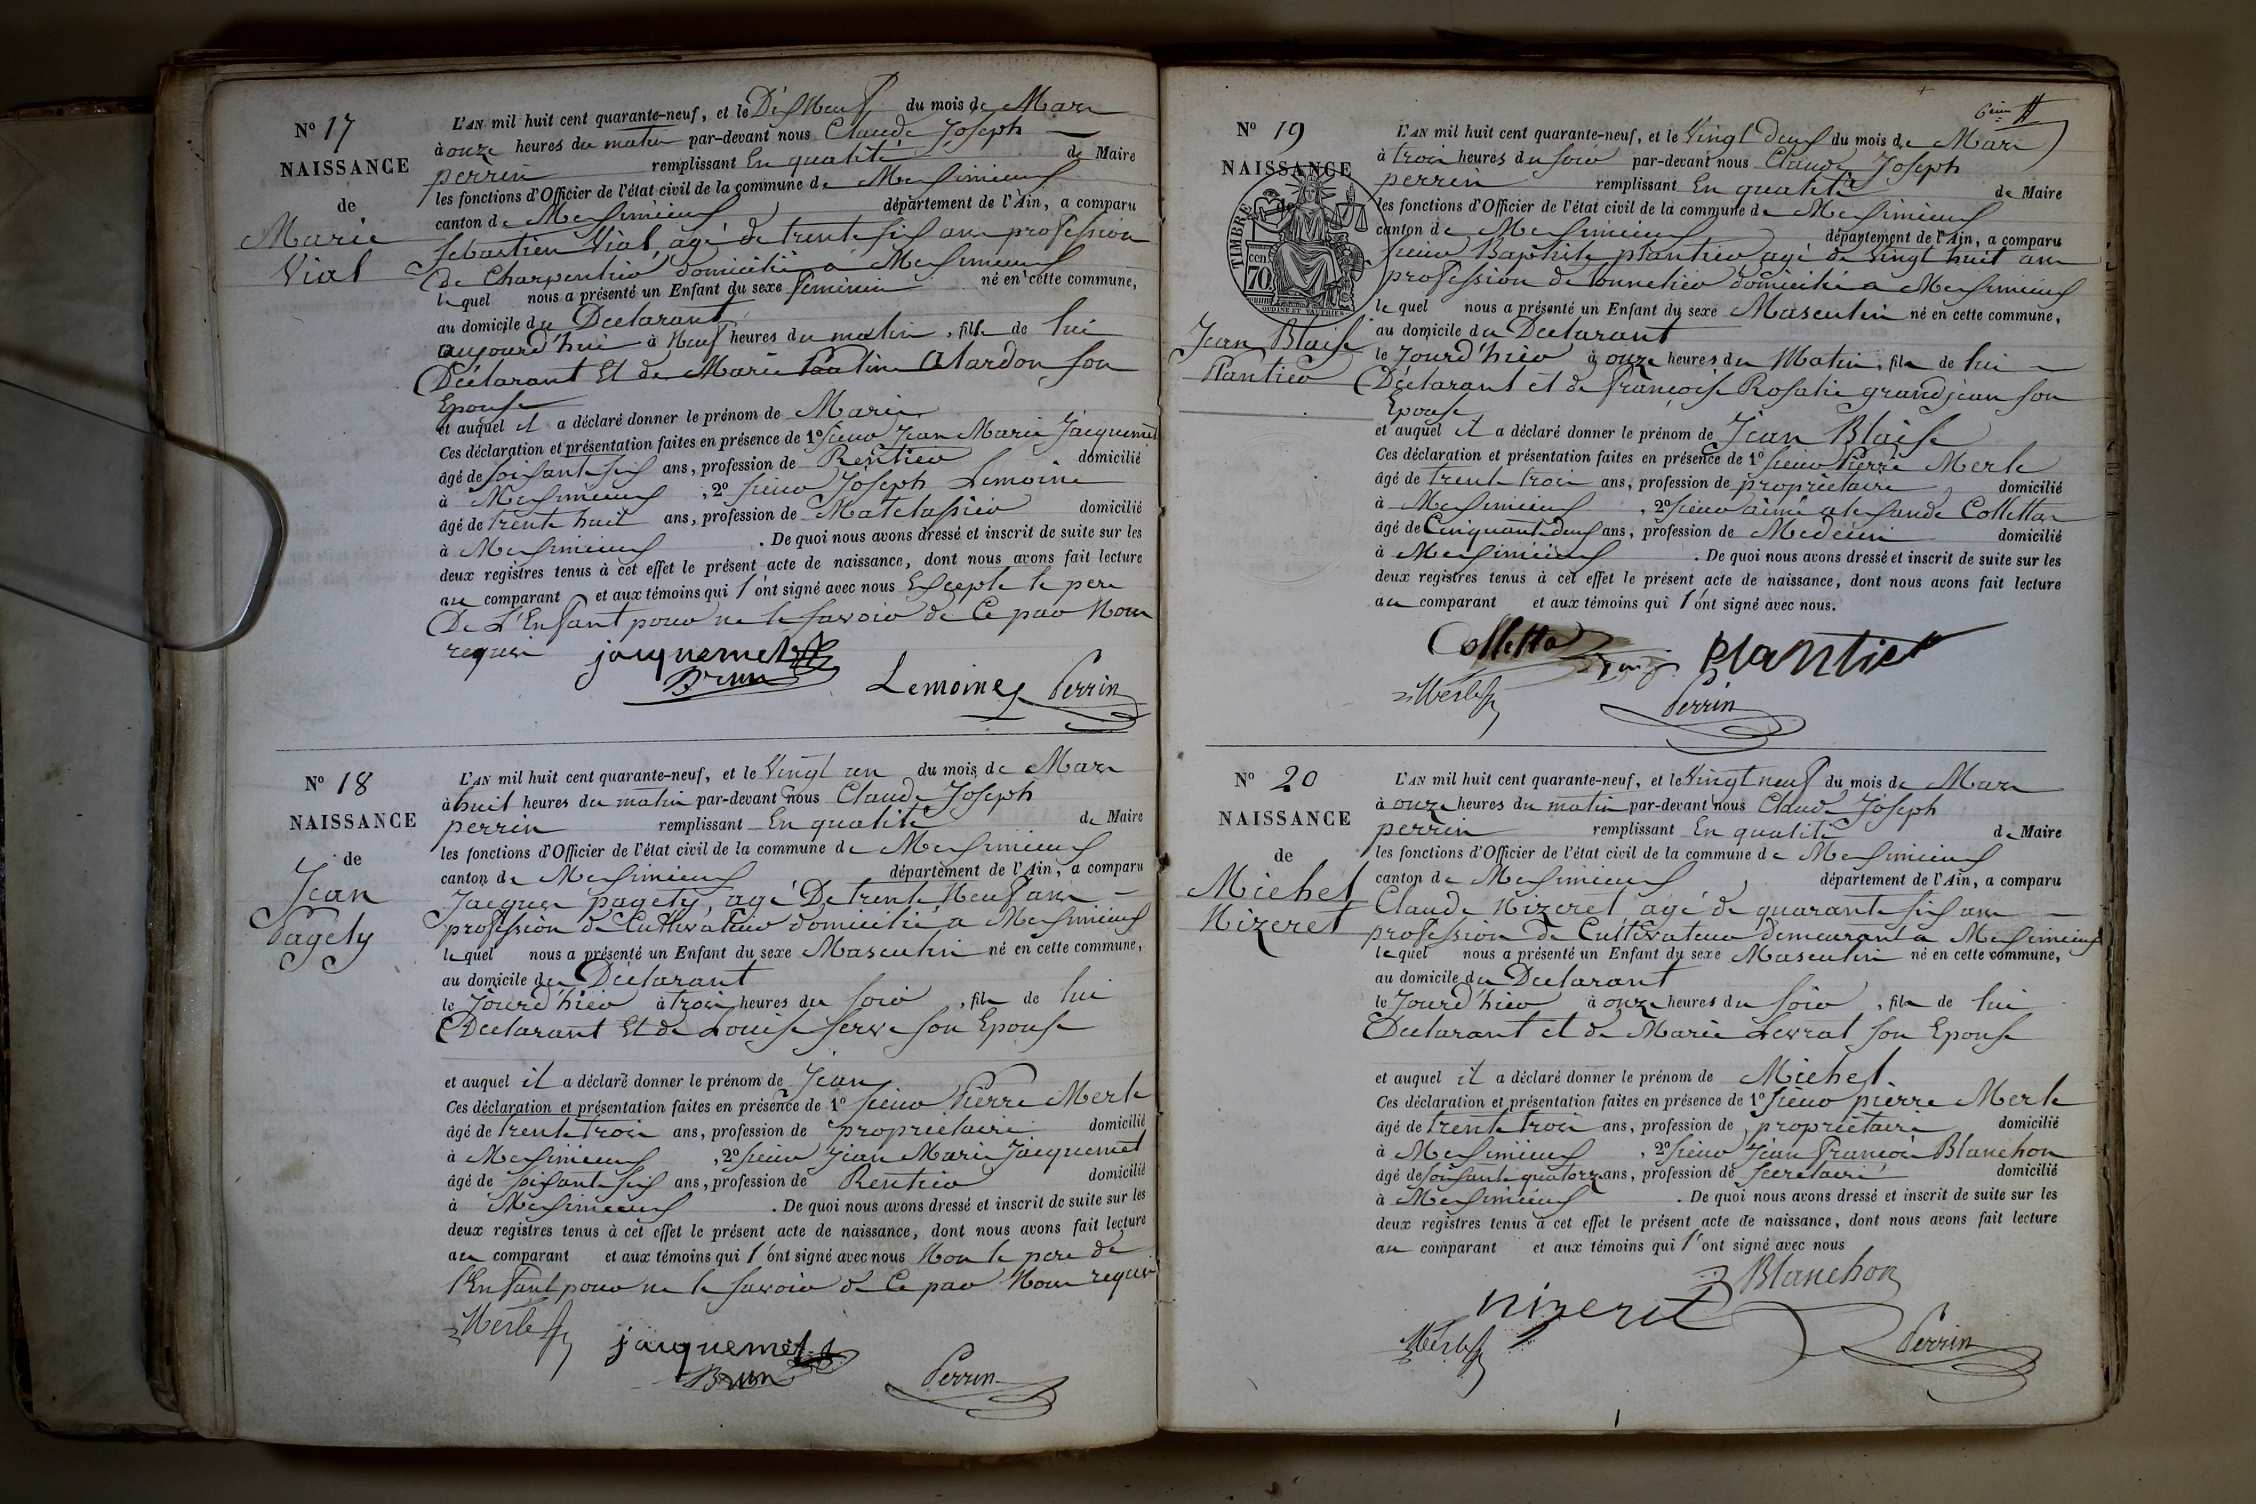 N° 17
NAISSANCE
de
Marie
Vial
L'AN mil huit cent quarante-neuf, et le Dix Neuf du mois de Mars
à onze heures du matin par-devant nous Claude Joseph
perrin remplissant En qualité de Maire
les fonctions d'Officier de l'état civil de la commune de Meximieux
canton de Meximieux département de l'Ain, a comparu
Sebastien Vial, agé de trente six ans profession
de Charpentier domicilié a Meximieux
lequel nous a présenté un Enfant du sexe feminin né en cette commune,
au domicile du Declarant
aujourd'hui à Neuf heures du matin, fille de lui
Déclarant Et de Marie Alardon son
Epouse
et auquel il a déclaré donner le prénom de Marie
Ces déclaration et présentation faites en présence de 1° Sieur Jean Marie Jacquemet
âgé de soixante six ans, profession de Rentier domicilié
à Meximieux, 2° Sieur Joseph Lemoine
âgé de trente huit ans, profession de Matelassier domicilié
à Meximieux. De quoi nous avons dressé et inscrit de suite sur les
deux registres tenus à cet effet le présent acte de naissance, dont nous avons fait lecture
au comparant et aux témoins qui l'ont signé avec nous Excepte le pere
De L'Enfant pour ne le savoir de Ce par Nous
requis jacquemet
Brun
Lemoine Perrin
N° 18
NAISSANCE
de
Jean
Pagety
L'AN mil huit cent quarante-neuf, et le Vingt un du mois de Mars
à huit heures du matin par-devant nous Claude Joseph
perrin remplissant En qualité de Maire
les fonctions d'Officier de l'état civil de la commune de Meximieux
canton de Meximieux département de l'Ain, a comparu
Jacques pagety, agé De trente Neuf ans
profession de Cultivateur domicilié a Meximieux
lequel nous a présenté un Enfant du sexe Masculin né en cette commune,
au domicile du Déclarant
le Jourd'hier à trois heures du soir, fils de lui
Declarant Et de Louise Serve son Epouse
et auquel il a déclaré donner le prénom de Jean
Ces déclaration et présentation faites en présence de 1° Sieur Pierre Merle
âgé de trente trois ans, profession de propriétaire domicilié
à Meximieux, 2° Sieur Jean Marie Jacquemet
âgé de soixante six ans, profession de Rentier domicilié
à Meximieux. De quoi nous avons dressé et inscrit de suite sur les
deux registres tenus à cet effet le présent acte de naissance, dont nous avons fait lecture
au comparant et aux témoins qui l'ont signé avec nous Non le pere de
l'Enfant pour ne le savoir de Ce par Nous requis
Merle
jacquemet
Brun Perrin
6ème
N° 19
NAISSANCE
de
TIMBRE
70 cen
Jean Blaise
Plantier
L'AN mil huit cent quarante-neuf, et le Vingt deux du mois de Mars
à trois heures du soir par-devant nous Claude Joseph
perrin remplissant En qualité de Maire
les fonctions d'Officier de l'état civil de la commune de Meximieux
canton de Meximieux département de l'Ain, a comparu
Sieur Baptiste plantier agé de Vingt huit ans
profession de Tonnelier domicilié a Meximieux
lequel nous a présenté un Enfant du sexe Masculin né en cette commune,
au domicile du Declarant
le Jourd'hier à onze heures du Matin, fils de lui
Déclarant et de françoise Rosalie grandjean son
Epouse
et auquel il a déclaré donner le prénom de Jean Blaise
Ces déclaration et présentation faites en présence de 1° Sieur Pierre Merle
âgé de trente trois ans, profession de propriétaire, domicilié
à Meximieux, 2° Sieur aimé alexandre Collettar
âgé de Cinquante deux ans, profession de Medecin domicilié
à Meximieux. De quoi nous avons dressé et inscrit de suite sur les
deux registres tenus à cet effet le présent acte de naissance, dont nous avons fait lecture
au comparant et aux témoins qui l'ont signé avec nous.
Plantier
Merle
Perrin
N° 20
NAISSANCE
de
Michel
Nizeret
L'AN mil huit cent quarante-neuf, et le Vingt neuf du mois de Mars
à onze heures du matin par-devant nous Claude Joseph
perrin remplissant En qualité de Maire
les fonctions d'Officier de l'état civil de la commune de Meximieux
canton de Meximieux département de l'Ain, a comparu
Claude Nizeret agé de quarante six ans
profession de Cultivateur demeurant a Meximieux
lequel nous a présenté un Enfant du sexe Masculin né en cette commune,
au domicile du Declarant
le Jourd'hier à onze heures du soir, fils de lui
Declarant et de Marie Levrat son Epouse
et auquel il a déclaré donner le prénom de Michel
Ces déclaration et présentation faites en présence de 1° Sieur pierre Merle
âgé de trente trois ans, profession de propriétaire domicilié
à Meximieux, 2° Sieur Jean François Blanchon
âgé de soixante quatorze ans, profession de Secretaire domicilié
à Meximieux. De quoi nous avons dressé et inscrit de suite sur les
deux registres tenus à cet effet le présent acte de naissance, dont nous avons fait lecture
au comparant et aux témoins qui l'ont signé avec nous
Blanchon
nizeret
Merle
Perrin